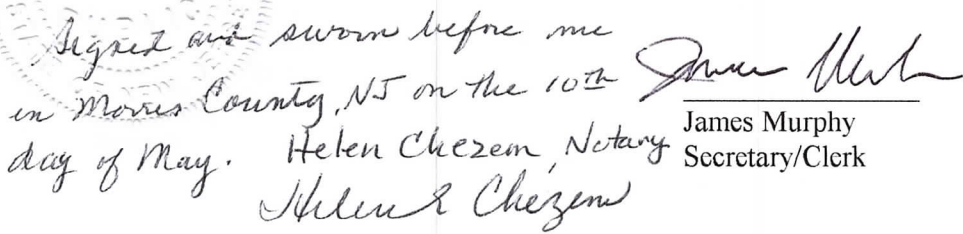 Signed and sworn before me
in Morris County, NJ on the 10th
day of May. Helen Chezem, Notary
Helen E Chezem
James Murphy
Secretary/Clerk